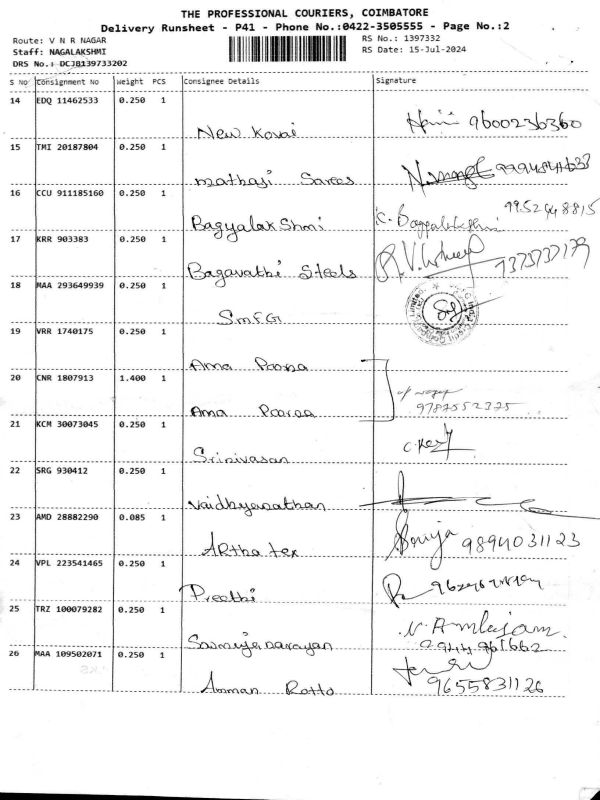 THE PROFESSIONAL COURIERS, COIMBATORE
Delivery Runsheet - P41 - Phone No.:0422-3505555 - Page No.:2
Route: V N R NAGAR RS No.: 1397332
Staff: NAGALAKSHMI RS Date: 15-Jul-2024
DRS No.: DCJB139733202
S No Consignment No Weight PCS Consignee Details Signature
14 EDQ 11462533 0.250 1
New Kovai 9600236360
15 TMI 20187804 0.250 1
mathaji Sarees
16 CCU 911185160 0.250 1
Bagyalakshmi
17 KRR 903383 0.250 1
Bagavathi Steels
18 MAA 293649939 0.250 1
SMFG
19 VRR 1740175 0.250 1
Ama Poorna
20 CNR 1807913 1.400 1
Ama Poorna 9787552375
21 KCM 30073045 0.250 1
Srinivasan
22 SRG 930412 0.250 1
Vaidhyanathan
23 AMD 28882290 0.085 1
Artha tex 9894031123
24 VPL 223541465 0.250 1
Preethi
25 TRZ 100079282 0.250 1
26 MAA 109502071 0.250 1
Amman 9655831126